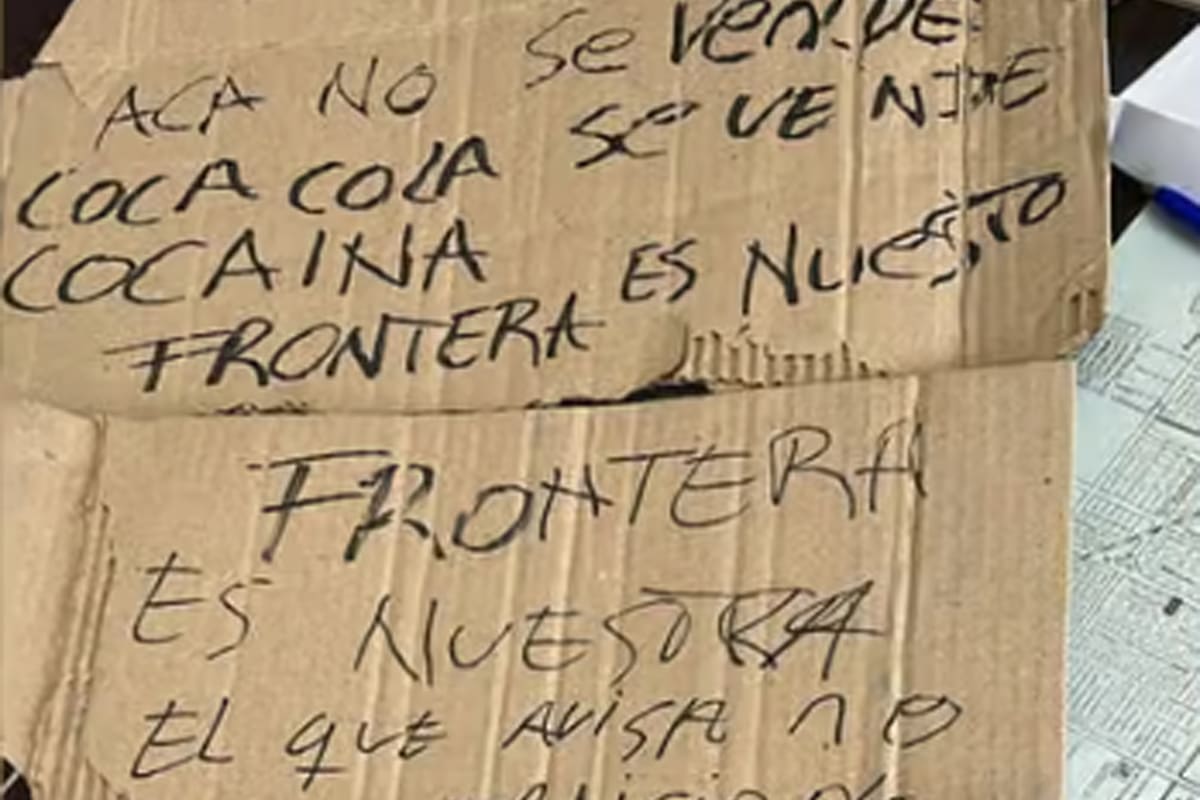 ACA NO se VenDE
COCA COLA Se VENDE
COCAINA
FRONTERA ES NUESTO
FRONTERA
ES NUESTRA
EL QUE AVISA NO